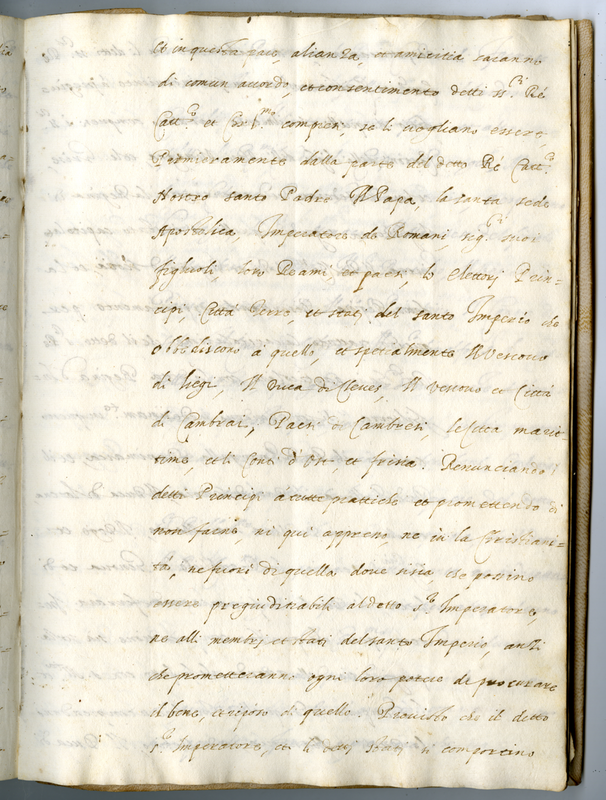 Et in questa pace, alianza, et amicitia saranno
di comun accordo, et consentimento detti ss.ri Ré
Catt.co et Chr.mo compresi, se li vogliano essere,
Premieramente dalla parte del detto Ré Catt.co
Nostro santo Padre Il Papa, la santa sede
Apostolica, Imperatore de Romani seg.ri suoi
figliuoli, loro Reami, et paesi, li Elettori Prin-
cipi, Città terre, et stati del santo Imperio che
obbediscono a quello, et specialmente Il Vescovo
di liegi, Il Duca di Cleves, Il Vescovo et Città
di Cambrai, Paesi di Cambresi, le Città marit-
time, et li Conti d'Ost et frisia. Renunciando
detti Principi á tutte prattiche et promettendo di
non farne, ni qui appreno, ne in la Christiani-
tá, ne fuori di quella dove si sia che possino
essere pregiuditiabili al detto s.re Imperatore,
ne alli membri et stati del santo Imperio, anzi
che prometteranno ogni loro potere de procurare
il bene, et riposo di quello. Provisto che il detto
s.re Imperatore, et li detti stati si comportino